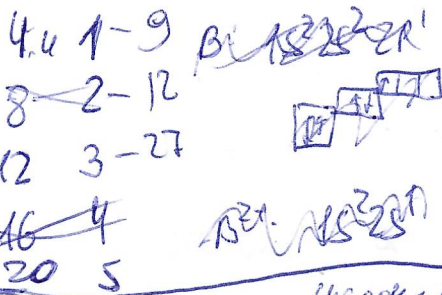 4.4 1-9 B 1S²2S²2P¹
8 2-12
12 3-27
16 4 B²⁺ 1S²2S¹
20 5